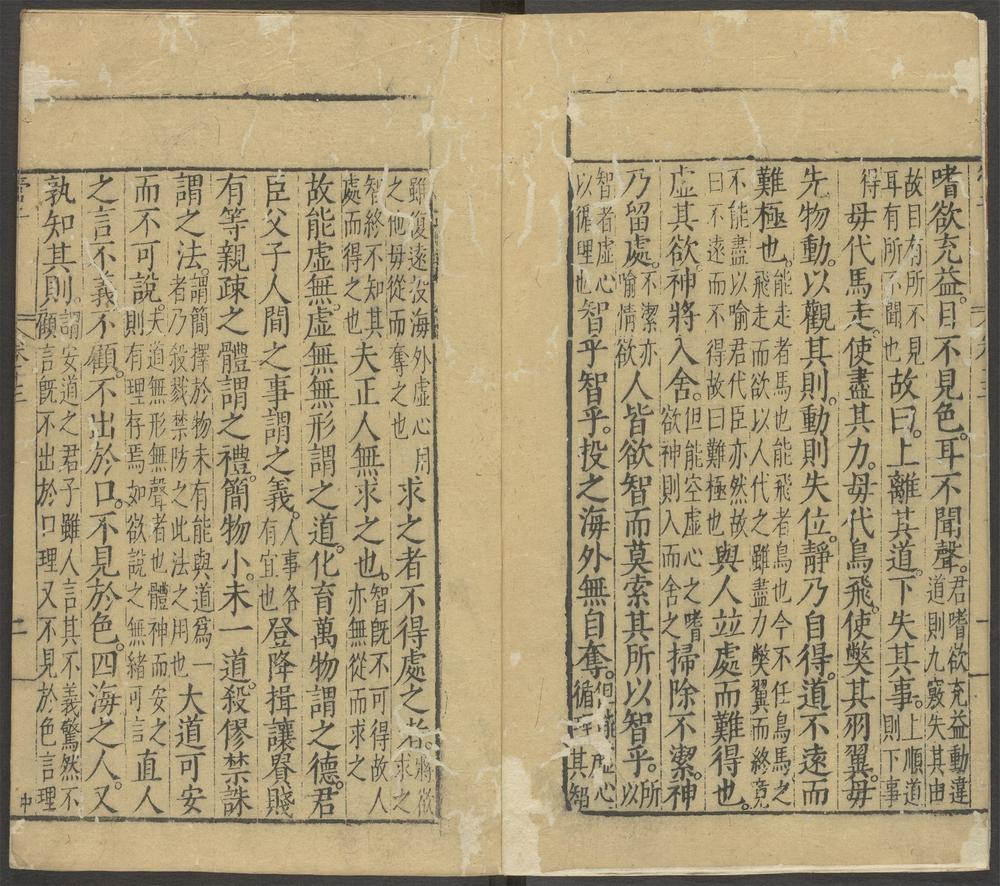 嗜欲充益。目不見色。耳不聞聲。君嗜欲充益動違道則九竅失其由
故目有所不見耳有所不聞也故曰。上離其道。下失其事。上順道則下事
得毋代馬走。使盡其力。毋代鳥飛。使獘其羽翼。毋
先物動。以觀其則。動則失位。靜乃自得。道不遠而
難極也。能走者馬也能飛者鳥也今不任鳥馬之飛走而欲以人代之雖盡力獘翼而終竟
不能盡以喻君代臣亦然故曰不遠而不得故曰難極也與人並處而難得也。
虛其欲。神將入舍。但能空虛心之嗜欲神則入而舍之掃除不潔。神
乃留處。不潔亦喻情欲人皆欲智而莫索其所以智乎。所以
智者虛心以循理也智乎智乎。投之海外無自奪。但能虛心循理其智
雖復遠投海外虛心用之他毋從而奪之也求之者不得處之者。將欲求之
智終不知其處而得之也夫正人無求之也。智既不可得故人亦無從而求之
故能虛無。虛無無形謂之道。化育萬物謂之德。君
臣父子人間之事謂之義。人事各有宜也登降揖讓貴賤
有等親疎之體謂之禮。簡物小。未一道。殺僇禁誅
謂之法。謂簡擇於物未有能與道爲一者乃殺戮禁防之此法之用也大道可安
而不可說。夫道無形無聲者也體神而安之則有理存焉如欲說之無緒可言直人
之言不義不顧。不出於口。不見於色。四海之人。又
孰知其則。謂安道之君子雖人言其不義驚然不顧言既不出於口理又不見於色言理
二
中